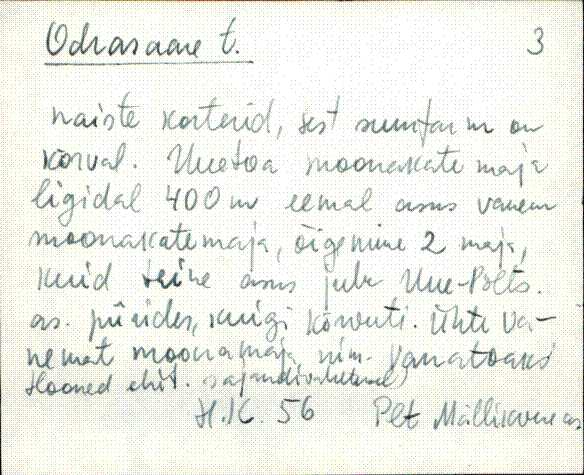 Odrasaare t. 3
naiste korterid, sest suurfarm on
kõrval. Uuetoa moonakate maja
ligidal 400 m eemal asus vanem
moonakatemaja, õigemine 2 maja,
kuid teine asus juba Uue-Põlts.
as. piirides, kuigi kõrvuti. Ühte va-
nemat moonamaja nim. Vanatoaks
Hooned ehit. sajandivahetusel)
H.K. 56 Plt